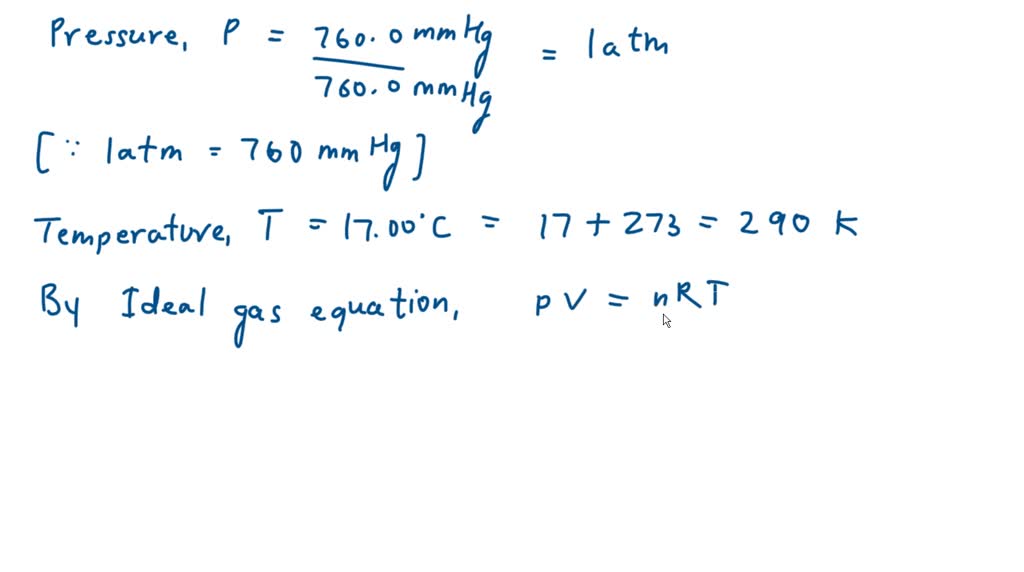 Pressure, P = 760.0 mmHg / 760.0 mmHg = 1atm
[∵ 1atm = 760 mmHg]
Temperature, T = 17.00°C = 17 + 273 = 290 K
By Ideal gas equation, pV = nRT